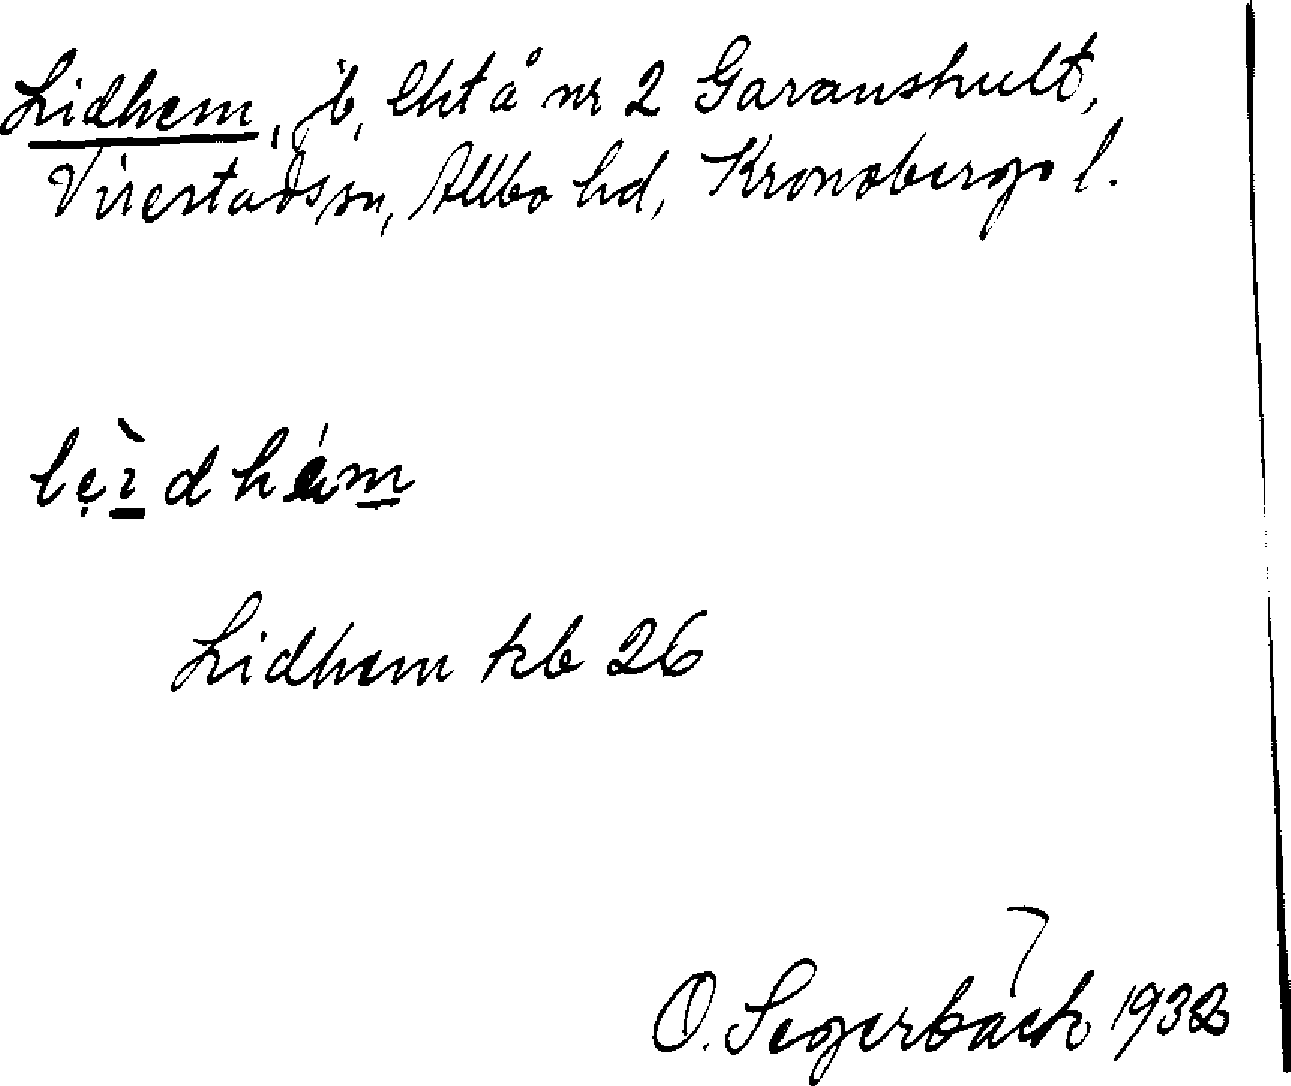 Lidhem, jb, lht å nr 2 Garanshult,
Virestads sn, Allbo hd, Kronobergs l.
lẹìdhém
Lidhem kb 26
O. Segerbäck 1932